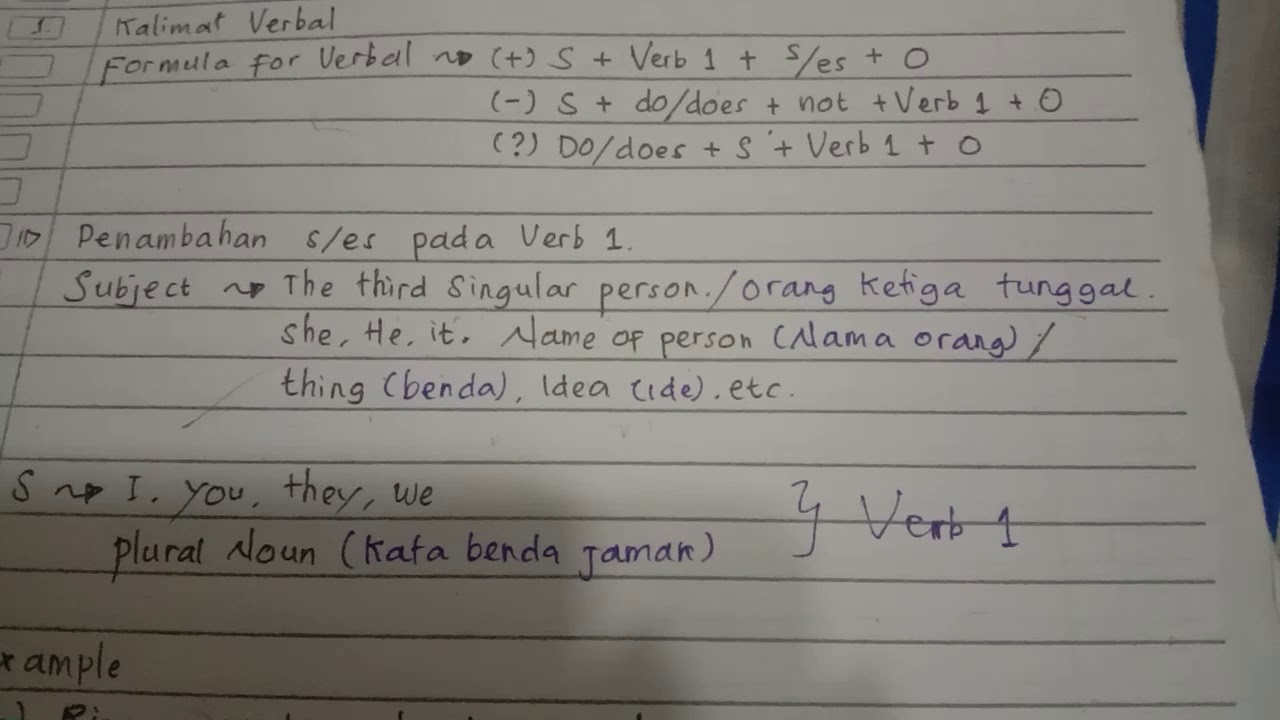 1. Kalimat Verbal
Formula for Verbal ~> (+) S + Verb 1 + s/es + O
(-) S + do/does + not + Verb 1 + O
(?) DO/does + S + Verb 1 + O
1> Penambahan s/es pada Verb 1.
Subject ~> The third singular person./orang ketiga tunggal.
she, He, it. Name of person (Nama orang) /
thing (benda), Idea (ide). etc.
S ~> I, you, they, we
plural Noun (kata benda jamak) } Verb 1
xample